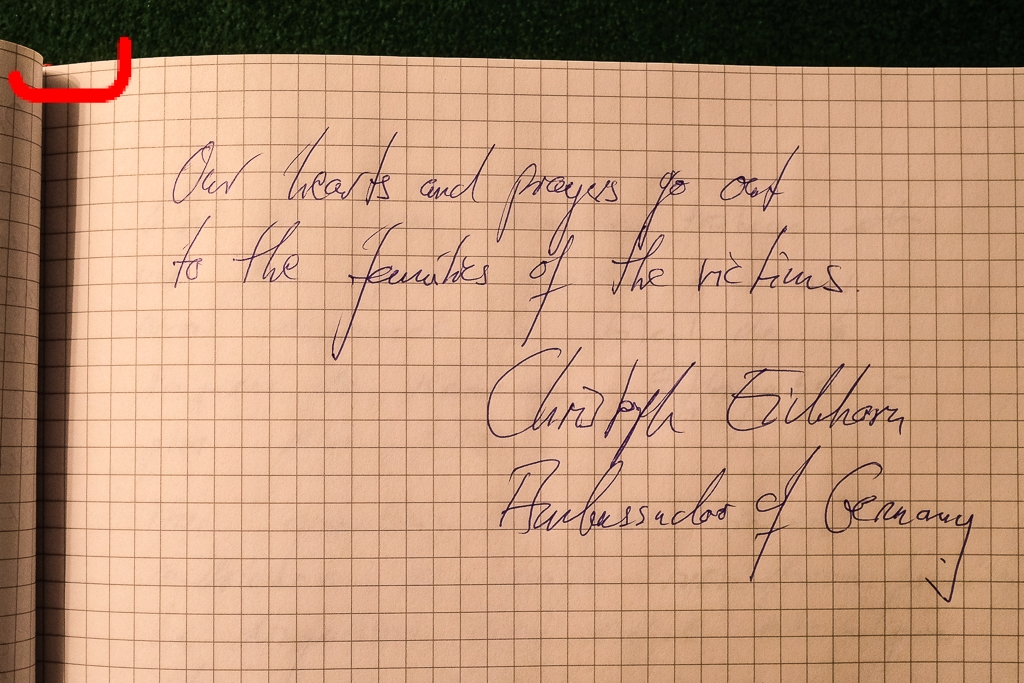 Our hearts and prayers go out
to the families of the victims.
Christoph Eichhorn
Ambassador of Germany